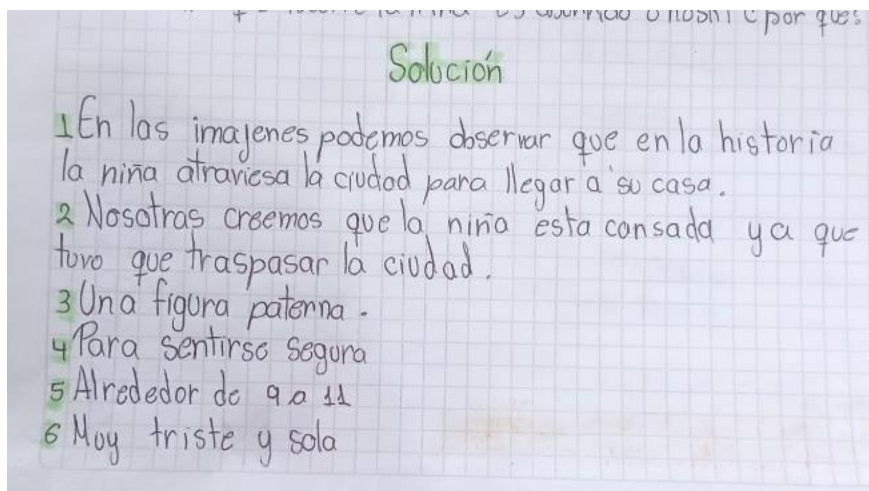 por ques
Solución
1 En las imajenes podemos observar que en la historia
la niña atraviesa la ciudad para llegar a su casa.
2 Nosotras creemos que la niña esta cansada ya que
tuvo que traspasar la ciudad.
3 Una figura paterna.
4 Para sentirse segura
5 Alrededor de 9 a 11
6 Muy triste y sola